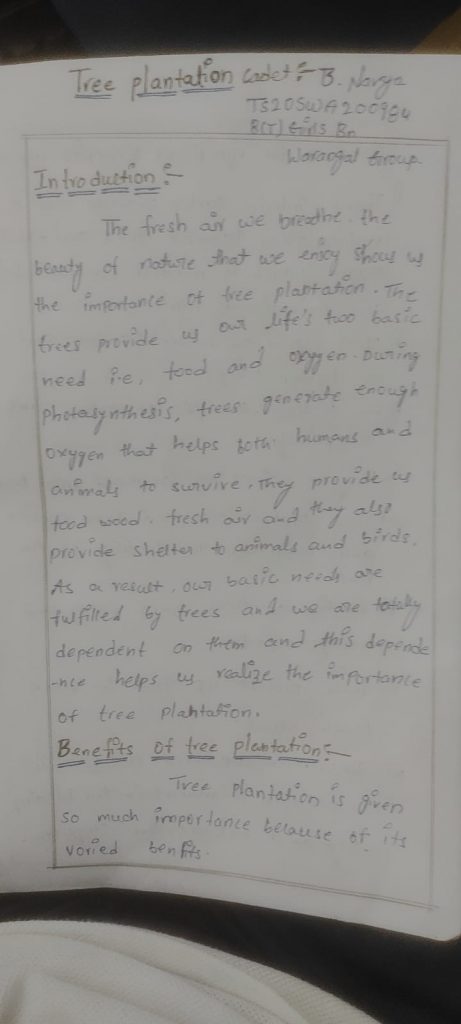 Tree plantation Cadet :- B. Navya
TS20SWA200984
8(T) Girls Bn
Warangal Group
Introduction :-
The fresh air we breathe. the
beauty of nature that we enjoy shows us
the importance of tree plantation. The
trees provide us our life's two basic
need i.e, food and oxygen. During
photosynthesis, trees generate enough
oxygen that helps both humans and
animals to survive. They provide us
food wood. fresh air and they also
provide shelter to animals and birds.
As a result, our basic needs are
fulfilled by trees and we are totally
dependent on them and this depende
-nce helps us realize the importance
of tree plantation.
Benefits of tree plantation :-
Tree plantation is given
so much importance because of its
varied benfits.